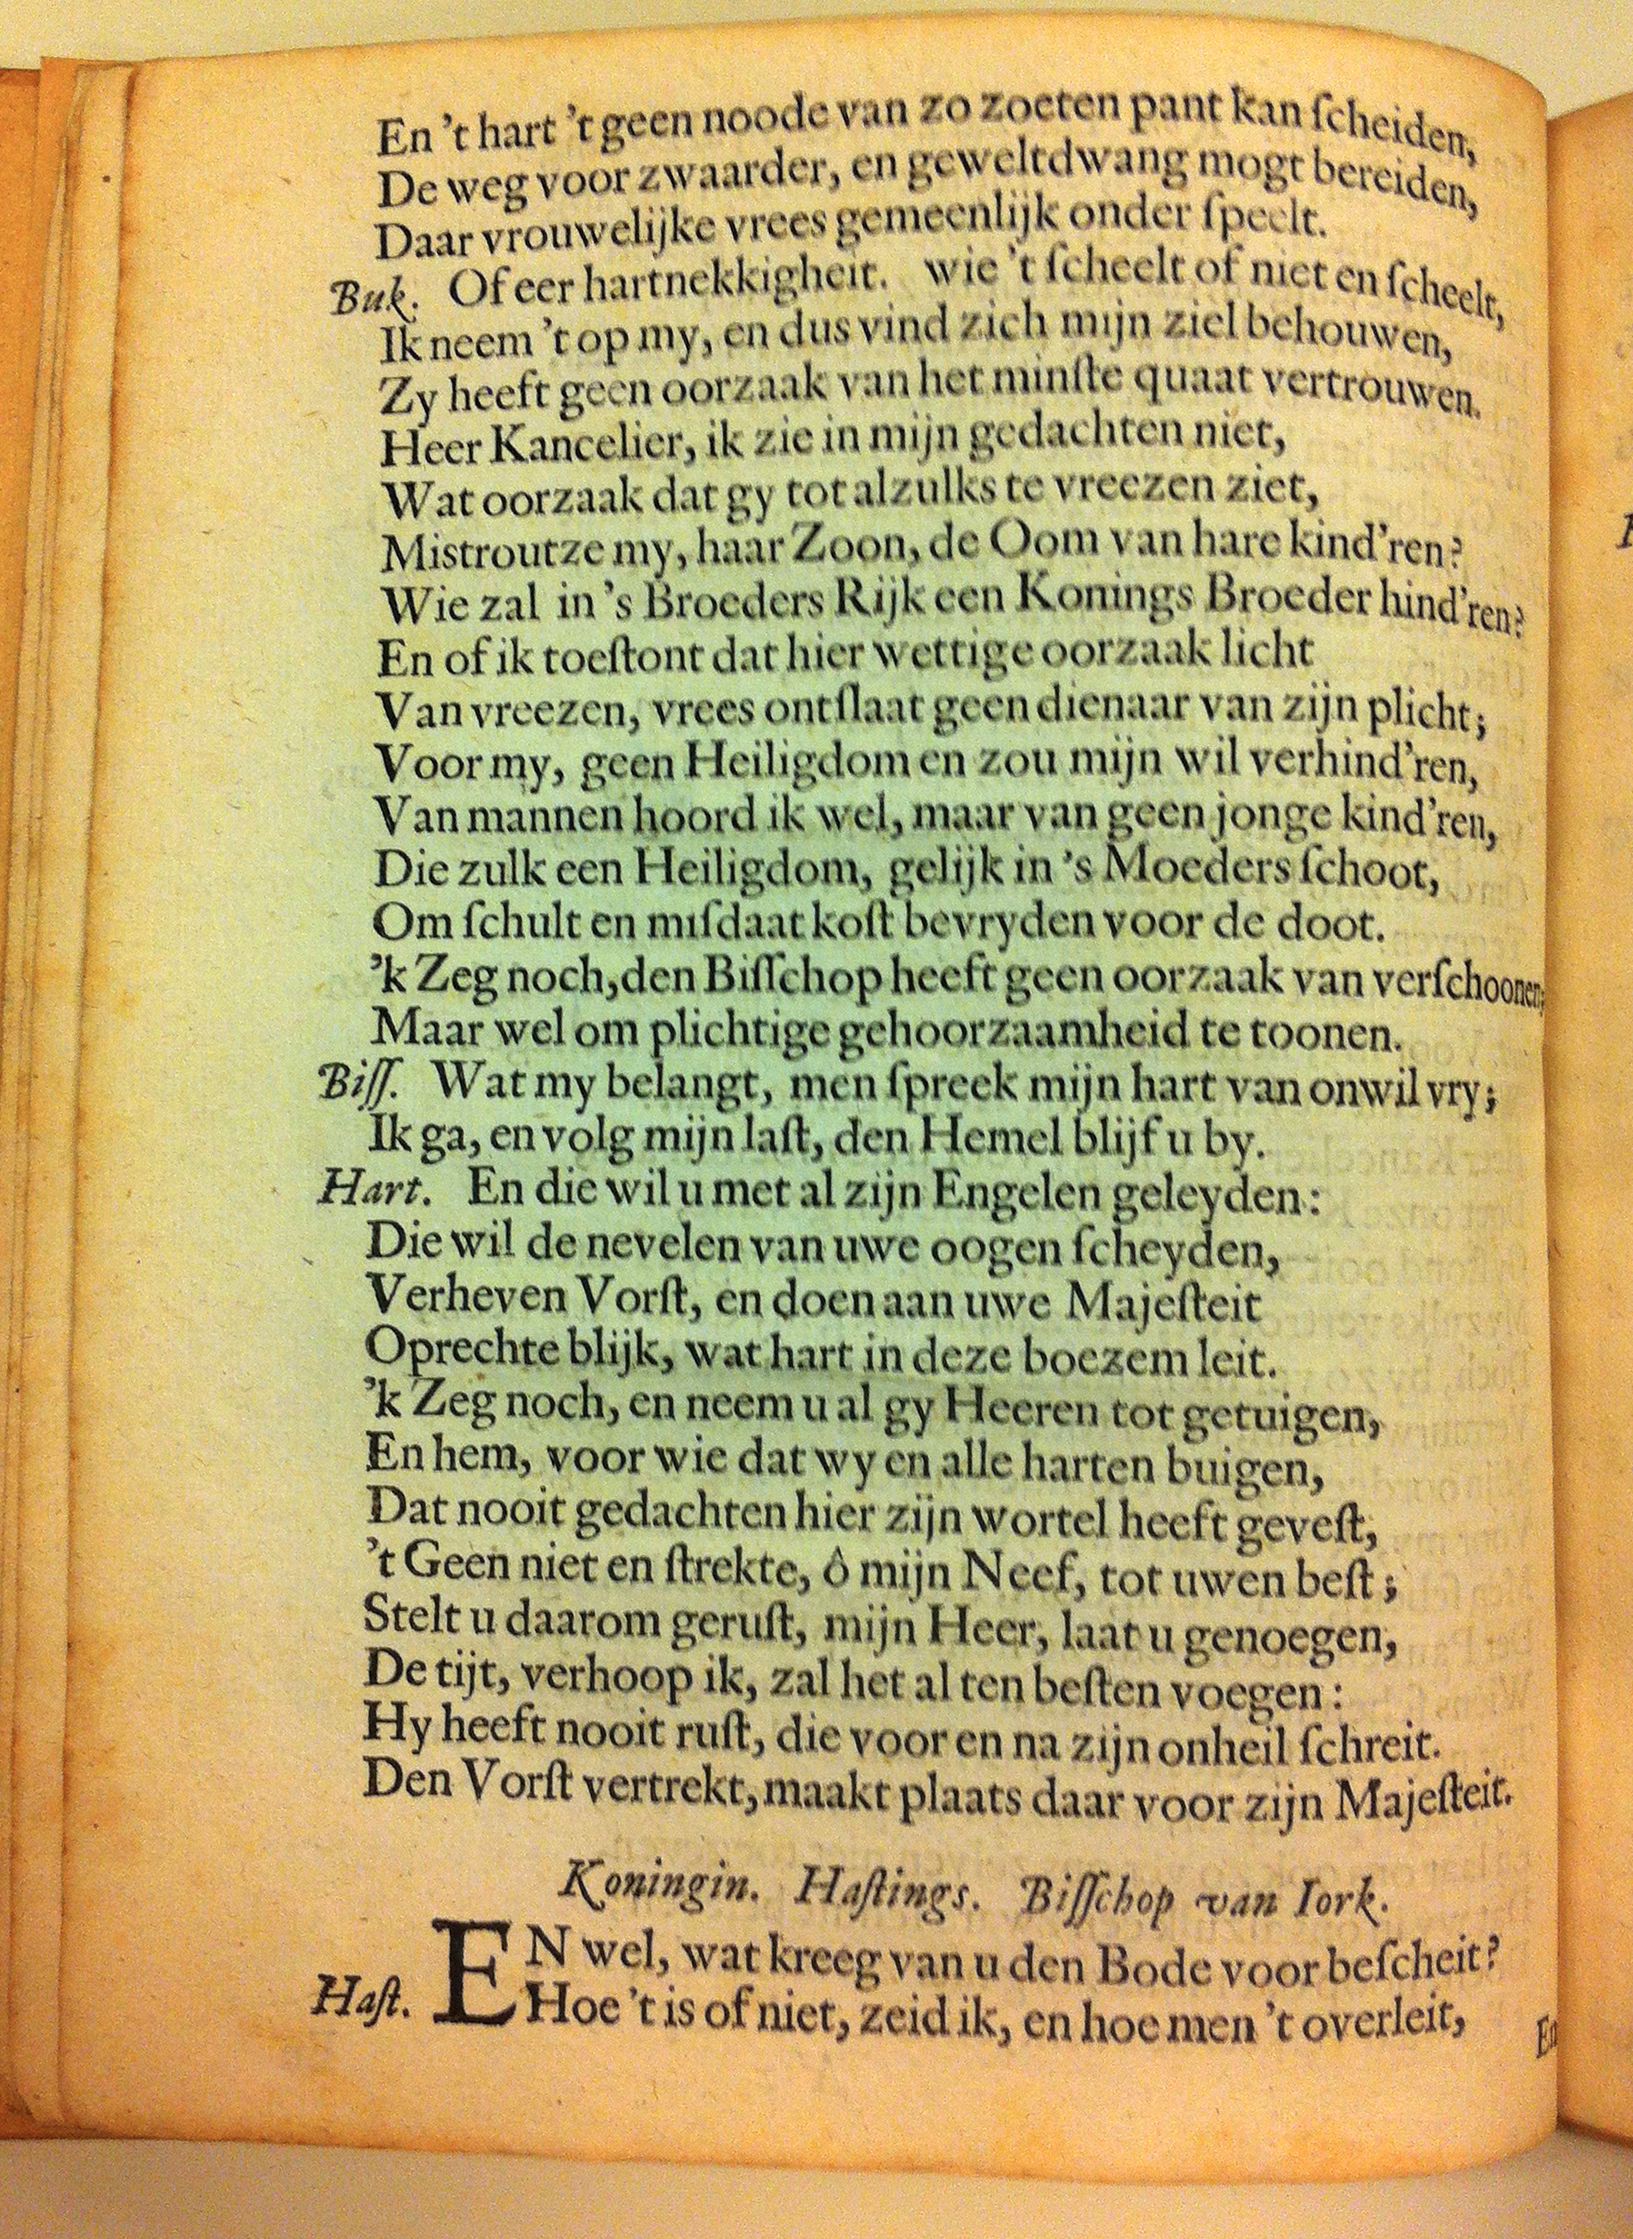 En 't hart 't geen noode van zo zoeten pant kan ſcheiden,
De weg voor zwaarder, en geweltdwang mogt bereiden,
Daar vrouwelijke vrees gemeenlijk onder ſpeelt.
Buk. Of eer hartnekkigheit. wie 't ſcheelt of niet en ſcheelt,
Ik neem 't op my, en dus vind zich mijn ziel behouwen,
Zy heeft geen oorzaak van het minſte quaat vertrouwen.
Heer Kancelier, ik zie in mijn gedachten niet,
Wat oorzaak dat gy tot alzulks te vreezen ziet,
Mistrout ze my, haar Zoon, de Oom van hare kind'ren?
Wie zal in 's Broeders Rijk een Konings Broeder hind'ren?
En of ik toeſtont dat hier wettige oorzaak licht
Van vreezen, vrees ontſlaat geen dienaar van zijn plicht;
Voor my, geen Heiligdom en zou mijn wil verhind'ren,
Van mannen hoord ik wel, maar van geen jonge kind'ren,
Die zulk een Heiligdom, gelijk in 's Moeders ſchoot,
Om ſchult en miſdaat koſt bevryden voor de doot.
'k Zeg noch, den Biſſchop heeft geen oorzaak van verſchoonen;
Maar wel om plichtige gehoorzaamheid te toonen.
Biſſ. Wat my belangt, men ſpreek mijn hart van onwil vry;
Ik ga, en volg mijn laſt, den Hemel blijf u by.
Hart. En die wil u met al zijn Engelen geleyden:
Die wil de nevelen van uwe oogen ſcheyden,
Verheven Vorſt, en doen aan uwe Majeſteit
Oprechte blijk, wat hart in deze boezem leit.
'k Zeg noch, en neem u al gy Heeren tot getuigen,
En hem, voor wie dat wy en alle harten buigen,
Dat nooit gedachten hier zijn wortel heeft geveſt,
't Geen niet en ſtrekte, ô mijn Neef, tot uwen beſt;
Stelt u daarom geruſt, mijn Heer, laat u genoegen,
De tijt, verhoop ik, zal het al ten beſten voegen:
Hy heeft nooit ruſt, die voor en na zijn onheil ſchreit.
Den Vorſt vertrekt, maakt plaats daar voor zijn Majeſteit.
Koningin. Haſtings. Biſſchop van Iork.
EN wel, wat kreeg van u den Bode voor beſcheit?
Haſt. Hoe 't is of niet, zeid ik, en hoe men 't overleit,